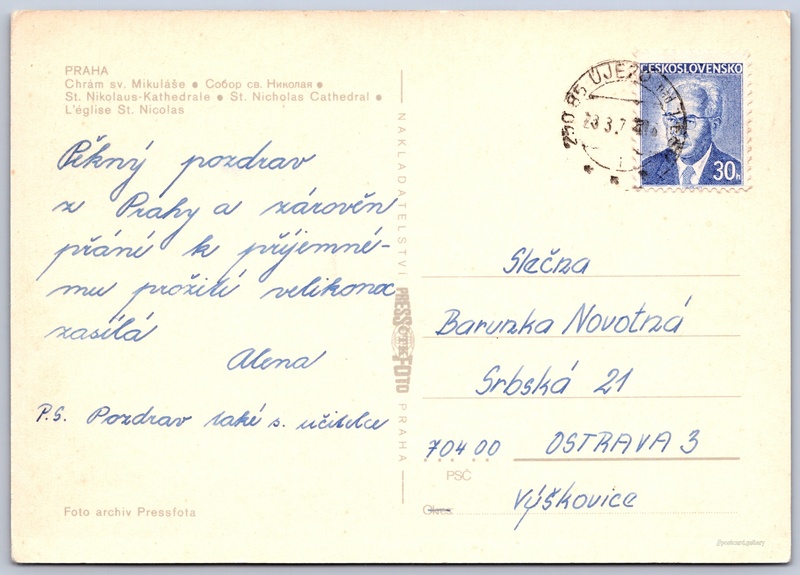 PRAHA
Chrám sv. Mikuláše ● Собор св. Николая ●
St. Nikolaus-Kathedrale ● St. Nicholas Cathedral ●
L'église St. Nicolas
Pěkný pozdrav
z Prahy a zárověn
přání k příjemné-
mu prožití velikonoc
zasílá
Alena
P.S. Pozdrav také s. učitelce
Foto archiv Pressfota
NAKLADATELSTVÍ PRESSFOTO PRAHA
ČTK
250 85 ÚJEZD
28.3.7
ČESKOSLOVENSKO
30h
Slečna
Barunka Novotná
Srbská 21
704 00 OSTRAVA 3
PSČ
Výškovice
Okres